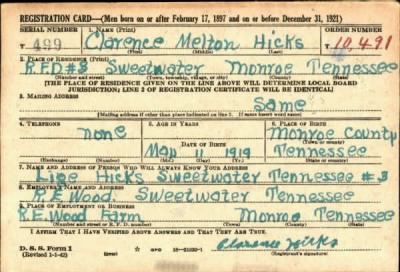 REGISTRATION CARD—(Men born on or after February 17, 1897 and on or before December 31, 1921)
SERIAL NUMBER 1. NAME (Print) ORDER NUMBER
T 499 Clarence Melton Hicks T10,491
(First) (Middle) (Last)
2. PLACE OF RESIDENCE (Print)
R.F.D #3 Sweetwater Monroe Tennessee
(Number and street) (Town, township, village, or city) (County) (State)
[THE PLACE OF RESIDENCE GIVEN ON THE LINE ABOVE WILL DETERMINE LOCAL BOARD
JURISDICTION; LINE 2 OF REGISTRATION CERTIFICATE WILL BE IDENTICAL]
3. MAILING ADDRESS
Same
[Mailing address if other than place indicated on line 2. If same insert word same]
4. TELEPHONE 5. AGE IN YEARS 6. PLACE OF BIRTH
none Monroe County
DATE OF BIRTH (Town or county)
May 11 1919 Tennessee
(Exchange) (Number) (Mo.) (Day) (Yr.) (State or country)
7. NAME AND ADDRESS OF PERSON WHO WILL ALWAYS KNOW YOUR ADDRESS
Lige Hicks Sweetwater Tennessee #3
8. EMPLOYER'S NAME AND ADDRESS
R.E. Wood. Sweetwater Tennessee
9. PLACE OF EMPLOYMENT OR BUSINESS
R.E. Wood Farm Monroe Tennessee
(Number and street or R. F. D. number) (Town) (County) (State)
I AFFIRM THAT I HAVE VERIFIED ABOVE ANSWERS AND THAT THEY ARE TRUE.
D. S. S. Form 1 GPO Clarence Hicks
(Revised 1-1-42) (over) (Registrant's signature)